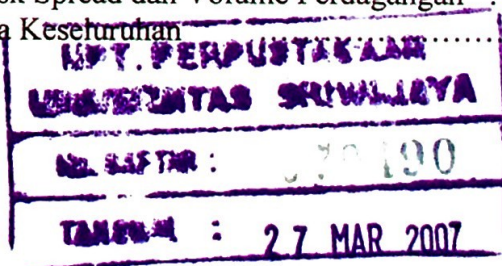 Spread dan Volume Perdagangan
a Keseluruhan ........................
UPT. PERPUSTAKAAN
UNIVERSITAS SRIWIJAYA
NO. DAFTAR :
TANGGAL : 27 MAR 2007